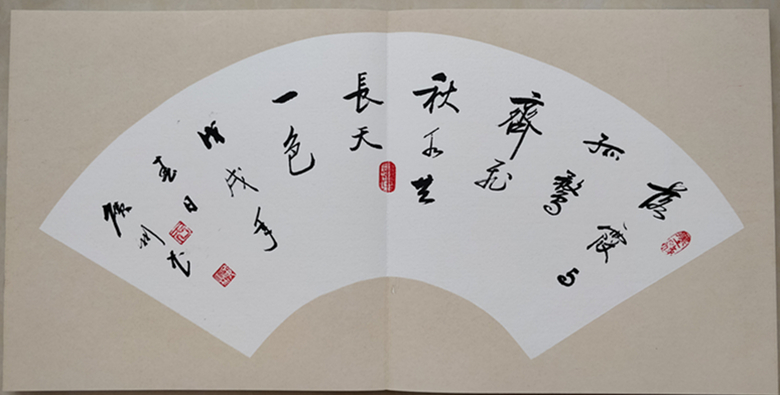 落霞与
孤鹜
齊飛
秋水共
長天
一色
戊戌年
春日